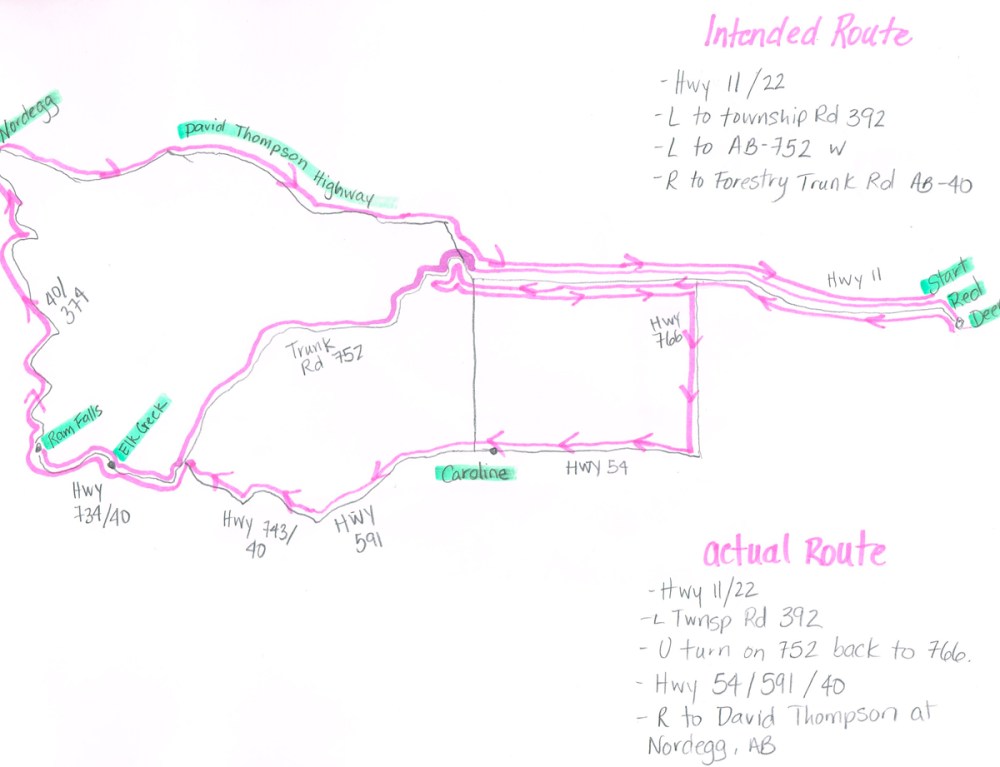 Intended Route
- Hwy 11/22
- L to township Rd 392
- L to AB-752 W
- R to Forestry Trunk Rd AB-40
Nordegg
David Thompson Highway
Hwy 11
Start
Red
Deer
40/
374
Trunk
Rd 752
Hwy
766
Ram Falls
Elk Creek
Caroline
HWY 54
Hwy
734/40
Hwy 743/
40
HWY
591
actual Route
- Hwy 11/22
- L Twnsp Rd 392
- U turn on 752 back to 766.
- Hwy 54/591/40
- R to David Thompson at
Nordegg, AB